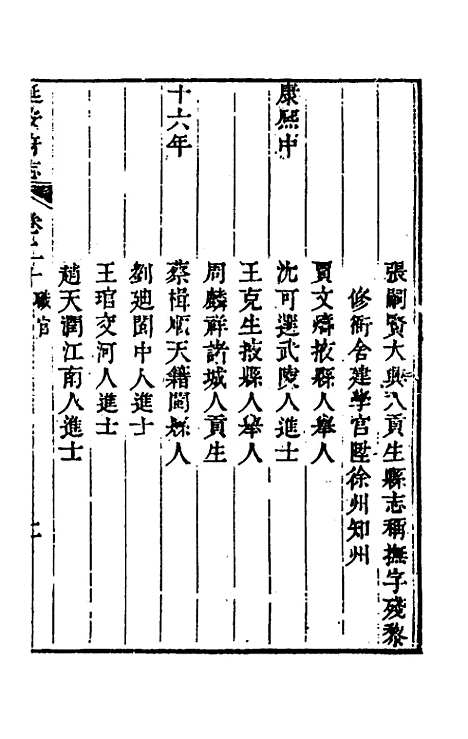 張嗣賢大興人貢生縣志稱撫字殘黎
修衙舍建學宮陞徐州知州
康熙中
賈文 掖縣人舉人
沈可選武陵人進士
王克生掖縣人舉人
周麟祥諸城人貢生
十六年
蔡楫順天籍閩縣人
劉廸閬中人進士
王琯交河人進士
趙天潤江南人進士
延安府志 卷二十 職官 二